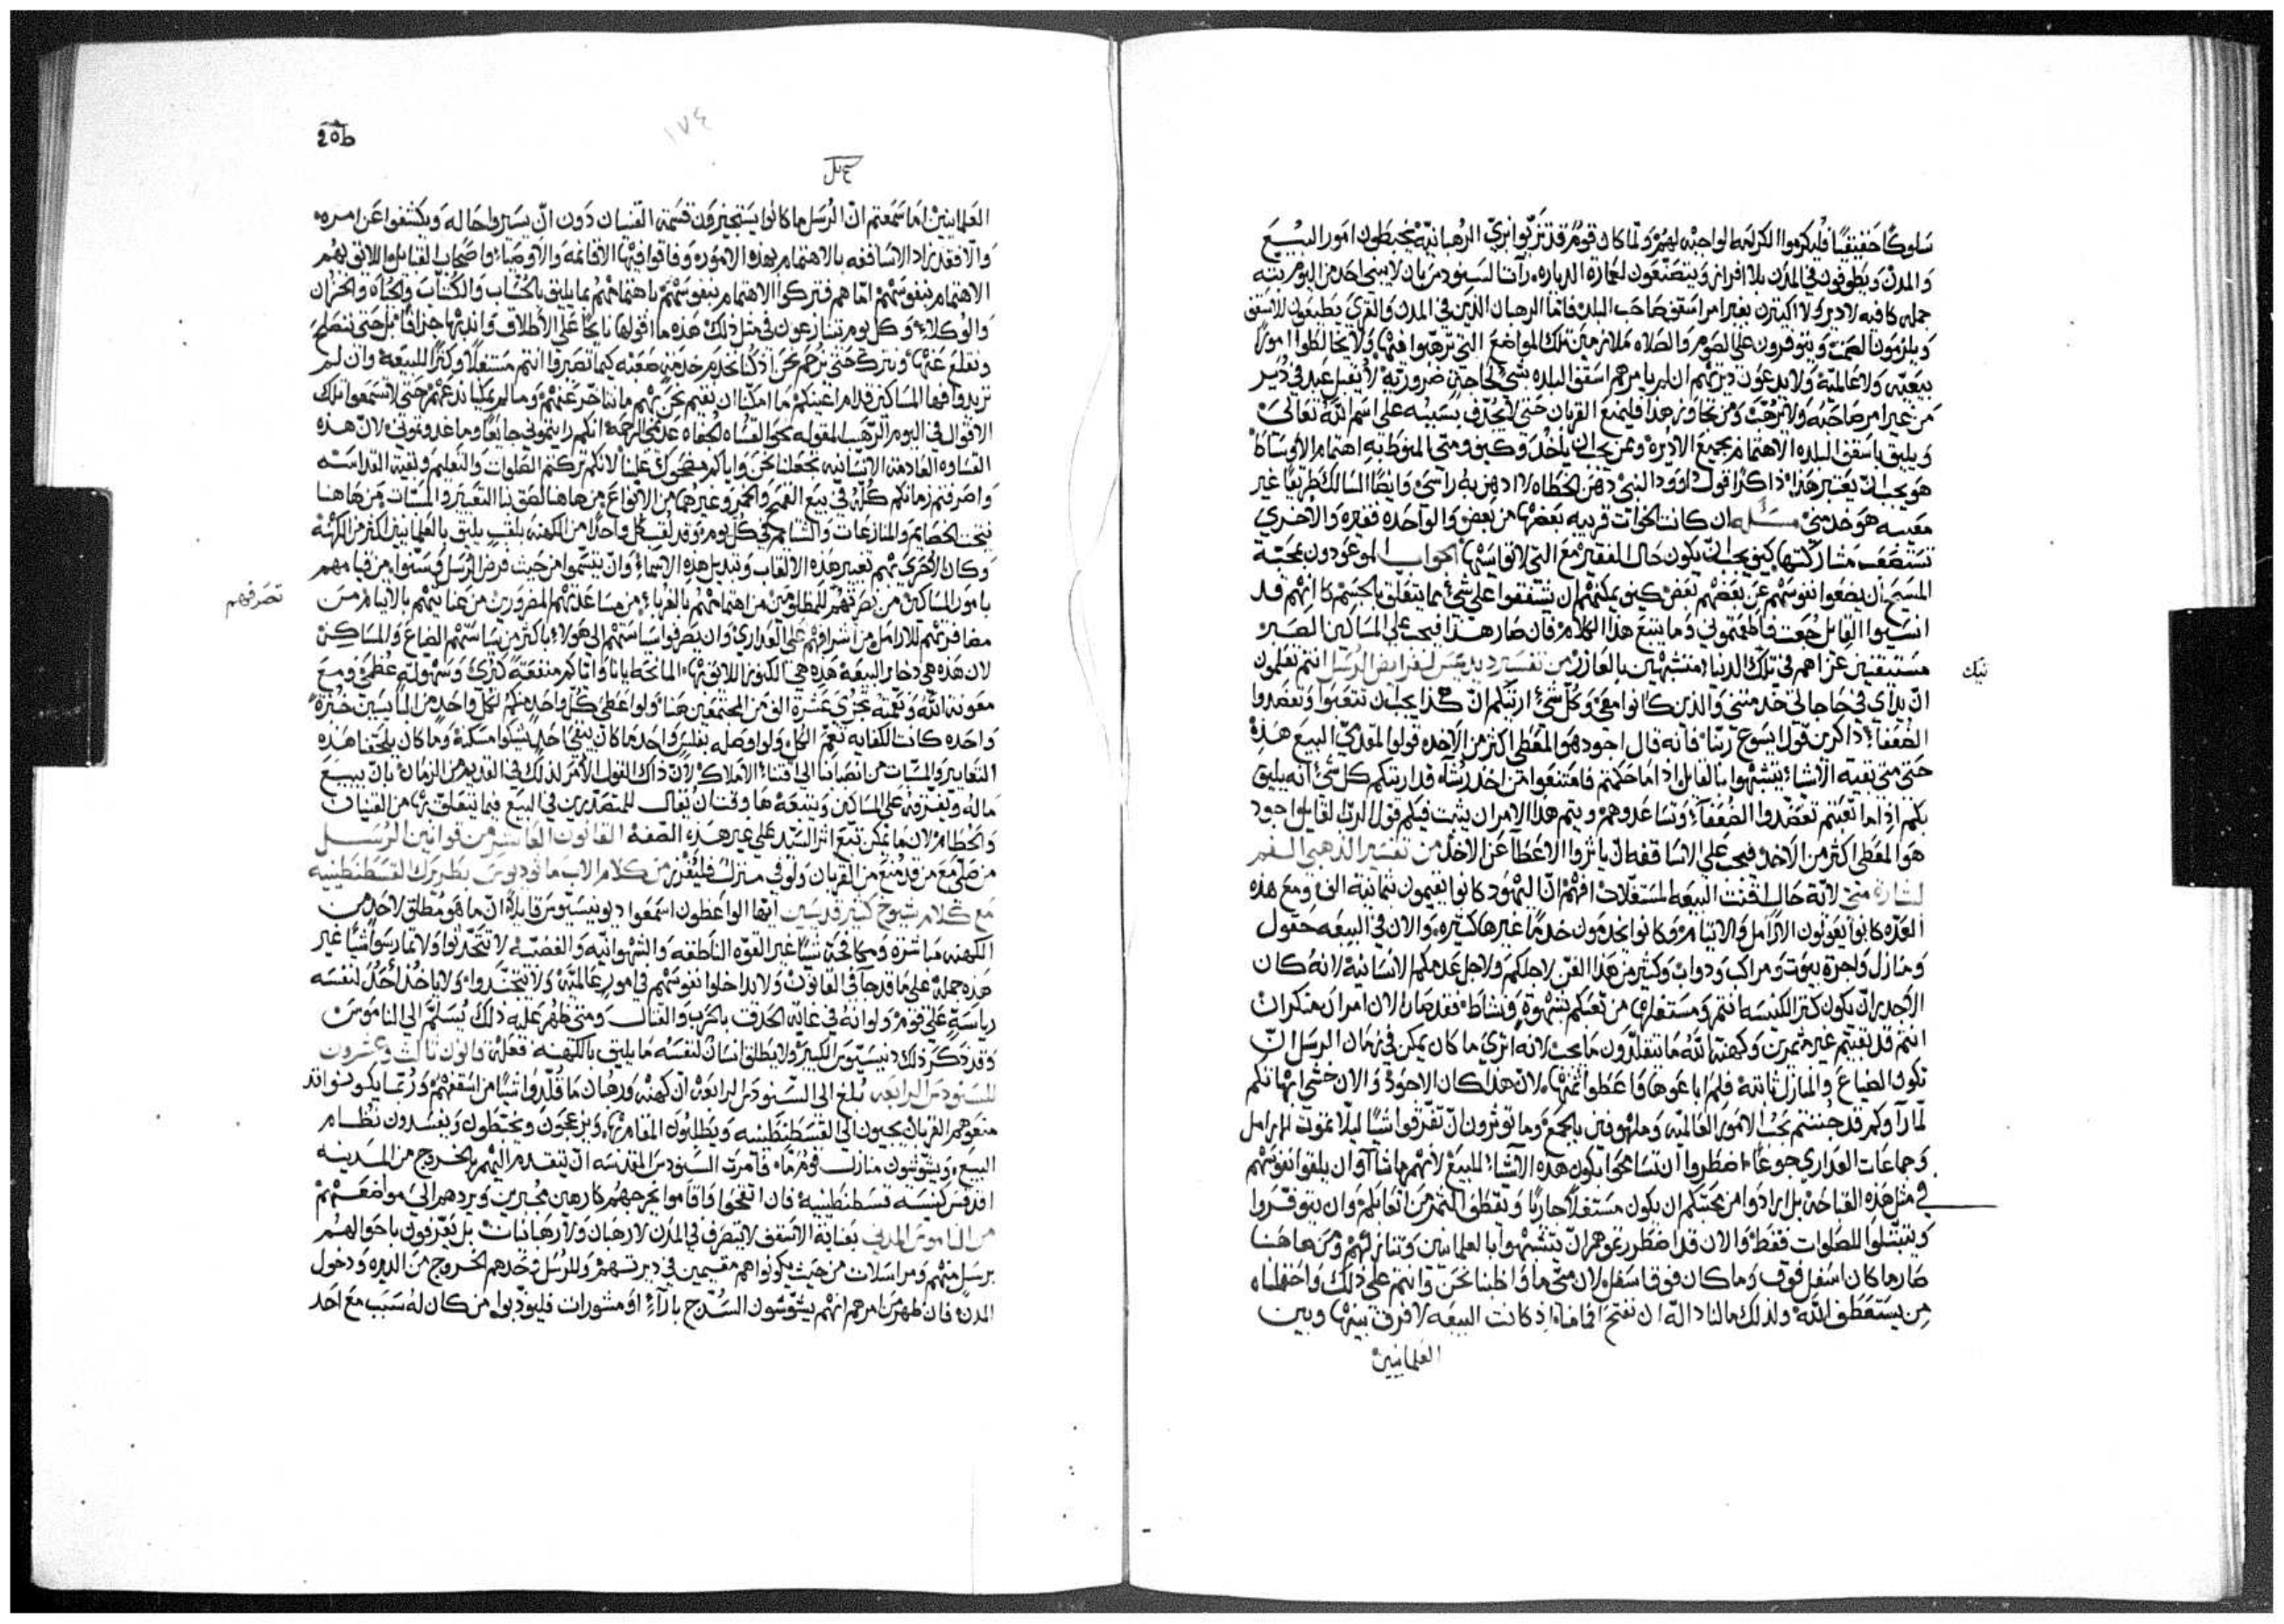 سلوكًا حقيقيًا فليكرموا الكرامه الواجبه لهم ولما كان قوم قد تزيوا بزي الرهبانيه يخبطون امور البيع
والمدن ويطوفون في المدن بلا افراز ويتصنعون لعمارة الدياره رات السنودس بان لا يبني احد من اليوم بته
جمله كافيه لا دير ولا اكتيرن بغير امر اسقف صاحب البلد فاما الرهبان الذين في المدن والقري يطيعون للاسقف
ويلزمون الصمت ويتوفرون علي الصوم والصلاه ملازمين تلك المواضع التي ترهبوا فيها ولا يخالطوا امورًا
بيعيه ولا عالميه ولا يدعون ديرتهم ان لم يامرهم اسقف البلده بشي لحاجه ضروريه لا يقبل عبد في دير
من غير امر صاحبه ولا يرهب ومن تجاوز هذا فليمنع القربان حتي لا يجدف بسببه علي اسم الله تعالي
ويليق باسقف البلده الاهتمام بجميع الاديره وعمن يجب ان ياخذ وكيف ومتي المنوطه به اهتمام الاوساط
هو يجب ان يعتبر هذا ذاكرًا قول داوود النبي دهن الخطاه لا ادهن به راسي وايضًا السالك طريقًا غير
معيبه هو خدمني مسله ان كانت اخوات قريبه بعضها من بعض والواحده فقيره والاخري
تستصعب مشاركتها كيف يجب ان يكون حال الفقيره مع التي لا تواسيها الجواب الموعودون بمحبة
المسيح ان يضعوا نفوسهم عن بعضهم بعض كيف يمكنهم ان يشفقوا علي شي مما يتعلق بالجسم كانهم قد
انسيوا القايل جعت فاطعمتموني وما يتبع هذا الكلام فان صار هذا فيجب علي المساكين الصبر
مستيقنين عزاهم في تلك الدنيا متشبهين بالعازر من تفسير ديديمس لفرايض الرسل انتم تعلمون
ان يداي في حاجاتي خدمتني والذين كانوا معي وكل شي اريتكم ان هكذا يجب ان تتعبوا وتعضدوا
الضعفا ذاكرين قول يسوع ربنا فانه قال اجود هو المعطي اكثر من الاخذ قولوا لمقدمي البيع هذه
بكم اذا ما اتعبتم تعضدوا الضعفا وتساعدوهم ويتم هذا الامر ان يثبت فيكم قول الرب القايل اجود
هو المعطي اكثر من الاخذ فيجب علي الاساقفه ان ياثروا الاعطا عن الاخذ من تفسير الذهبي الفم
لبشارة متي لانه حال اقتنت البيعه المستغلات افهم ان اليهود كانوا يقيمون ثمانية الف ومع هذه
العده كانوا يعولون الارامل والايتام وكانوا يخدمون خدمًا غيرها كثيره والان في البيعه حقول
ومنازل واجرة بيوت ومراكب ودواب وكثير من هذا الفن لاجلكم ولاجل عدمكم الانسانيه لانه كان
الاجدر ان يكون كنز الكنيسه بانتم ومستغلها من تعبكم بشهوة ونشاط فقد صار الان امران منكران
انتم قد بقيتم غير مثمرين وكهنة الله ما يتقلدون ما يجب لانه اتري ما كان يمكن في زمان الرسل ان
تكون الضياع والمنازل ثابته فلم باعوها واعطوا ثمنها لان هذا كان الاجود والان خشي ابهاتكم
لما راوكم قد جننتم بحب الامور العالميه وملهوفين بالجمع وما توثرون ان تفرقوا شيًا ليلا تموت الارامل
وجماعات العداري جوعًا اضطروا ان تسامحوا بكون هذه الاشيا للبيع لانهم ما شاوا ان يلقوا نفوسهم
في مثل هذه القباحه بل ارادوا من محبتكم ان يكون مستغلًا جاريًا وتقطف الثمر من اتعابكم وان يتوفروا
ويتبتلوا للصلوات فقط والان قد اضطررتموهم ان يتشبهوا بالعلمانيين وتنازلهم ومن هاهنا
صار ما كان اسفل فوق وما كان فوق اسفل لان متي ما واظبنا نحن وانتم علي ذلك واحفلناه
من يستعطف الله ولذلك ما لنا داله ان نفتح افمامنا اذ كانت البيعه لا فرق بينها وبين
العلمانيين
١٧٤
20b
العلمانيين اما سمعتم ان الرسل ما كانوا يستجيزون قسمة القسان دون ان يسيروا حاله ويكشفوا عن امره
والا فقد زاد الاساقفه بالاهتمام بهذه الامور وفاقوا فيها الاقامه والاوصيا واصحاب القبايل واللايق بهم
الاهتمام بنفوسهم اما هم فتركوا الاهتمام بنفوسهم باهتمامهم بما يليق بالحساب والكتاب والجباه والخزان
والوكلاء وكل يوم تتنازعون في مثل ذلك هذه ما اقولها نايحًا علي الاطلاق واندبها جزافًا بل حتي ننصلح
ونقلع عنها ونترك حتي نرحم نحن اذ كنا نخدم خدمه صعبه كيما تصيروا انتم مستغلًا وكنزًا للبيعه وان لم
تريدوا فها المساكين قدام اعينكم ما امكننا ان نقيم نحن بهم ما نتاخر عنهم وما لم يمكنا ندعهم حتي لا تسمعوا تلك
الاقوال في اليوم الرهب المقوله نحو القساه الجفاه عدمي الرحمه انكم رايتموني جايعًا وما غدوتموني لان هذه
القساوه العادمه الانسانيه تجعلنا نحن واياكم مضحوك علينا لانكم تركتم الصلوات والتعليم وبقية القداسه
واصرفتم زمانكم كله في بيع القمح والخمر وغيرهما من الانواع من هاهنا لصق بنا التعيير والمسبات من هاهنا
ينتج الخصايم والمنازعات والمشاتم في كل يوم وقد لقب كل واحدًا من الكهنه بلقب يليق بالعلمانيين اكثر من الكهنه
وكان الاحري بهم تغيير هذه الالقاب وتبديل هذه الاسماء وان يتسموا من حيث فرض الرسل وسنوا من قيامهم
بامور المساكين من نصرتهم للمظلومين من اهتمامهم بالغربا من مساعدتهم المضرورين من عنايتهم بالايتام من
تصرفهم
مضافرتهم للارامل من اشرافهم علي العداري وان يصرفوا سياستهم الي هولا باكثر من سياستهم الضياع والمساكن
لان هذه هي دخاير البيعه هذه هي الكنوز اللايق بها المانحه ايانا واياكم منفعةً كبري وسهولة عظمي ومع
معونة الله ونعمته تجزي عشرة الف من المجتمعين هنا ولو اعطي كل واحد منكم لكل واحد من البايسين خبزة
واحده كانت الكفايه تعم الكل ولو اوصله بفلس واحد ما كان يبقي احد يشكوا مسكنه وما كان يلحقنا هذه
التعايير والمسبات من انصبابنا الي اقتنا الاملاك لان ذاك القول الامر لذلك في القديم من الزمان بان يبيع
ماله ويفرقه علي المساكين ويتبعه ها وقت ان يقال للمتصدرين في البيع فيما يتعلق بها من القنيات
والحطام لان ما يمكن تتبع اثر السيد علي غير هذه الصفه القانون العاشر من قوانين الرسل
من صلي مع من قد منع من القربان ولو في منزل فليفرز من كلام الاب ماثوديوس بطريرك القسطنطينيه
مع كلام شيوخ كثير قديسين ايها الواعظون اسمعوا ديونيسيوس قايلًا ان ما هو مطلق لاحد من
الكهنه مباشرة ومكافحة شيًا غير القوه الناطقه والشهوانيه والغضبيه لا تتحدثوا ولا تمارسوا شيًا غير
هذه جملة علي ما قد جا في القانون ولا يداخلوا نفوسهم في امور عالميه ولا يتجندوا ولا ياخد احد لنفسه
رياسة علي قوم ولو انه في غاية الحدق بالحرب والقتال ومتي ظهر عليه ذلك يسلم الي الناموس
وقد ذكر ذلك دنيسيوس الكبير ولا يطلق انسان لنفسه ما يليق بالكهنه فعله قانون ثالث وعشرون
للسنودس الرابعه بلغ الي السنودس الرابعه ان كهنه ورهبان ما قلدوا شيًا من اسقفهم وربما يكونوا قد
منعوهم القربان يجيون الي القسطنطينيه ويطلبون المقام بها ويزعجون ويخبطون ويفسدون نظام
البيع ويشوشون منازل قوم ما فامرت السنودس المقدسه ان يتقدم اليهم بالخروج من المدينه
اقدقس كنيسة قسطنطينيه فان اتقحوا واقاموا يخرجهم كارهين مجبرين ويردهم الي مواضعهم
من الناموس المدني بعناية الاسقف لا يتصرف في المدن لا رهبان ولا رهبانات بل يعرفون باحوالهم
برسل منهم ومراسلات من حيث يكونوا هم مقيمين في ديرتهم وللرسل وحدهم الخروج من الديره ودخول
المدن فان ظهر من امرهم انهم يشوشون السدج باراء او مشورات فليودبوا من كان له سبب مع احد